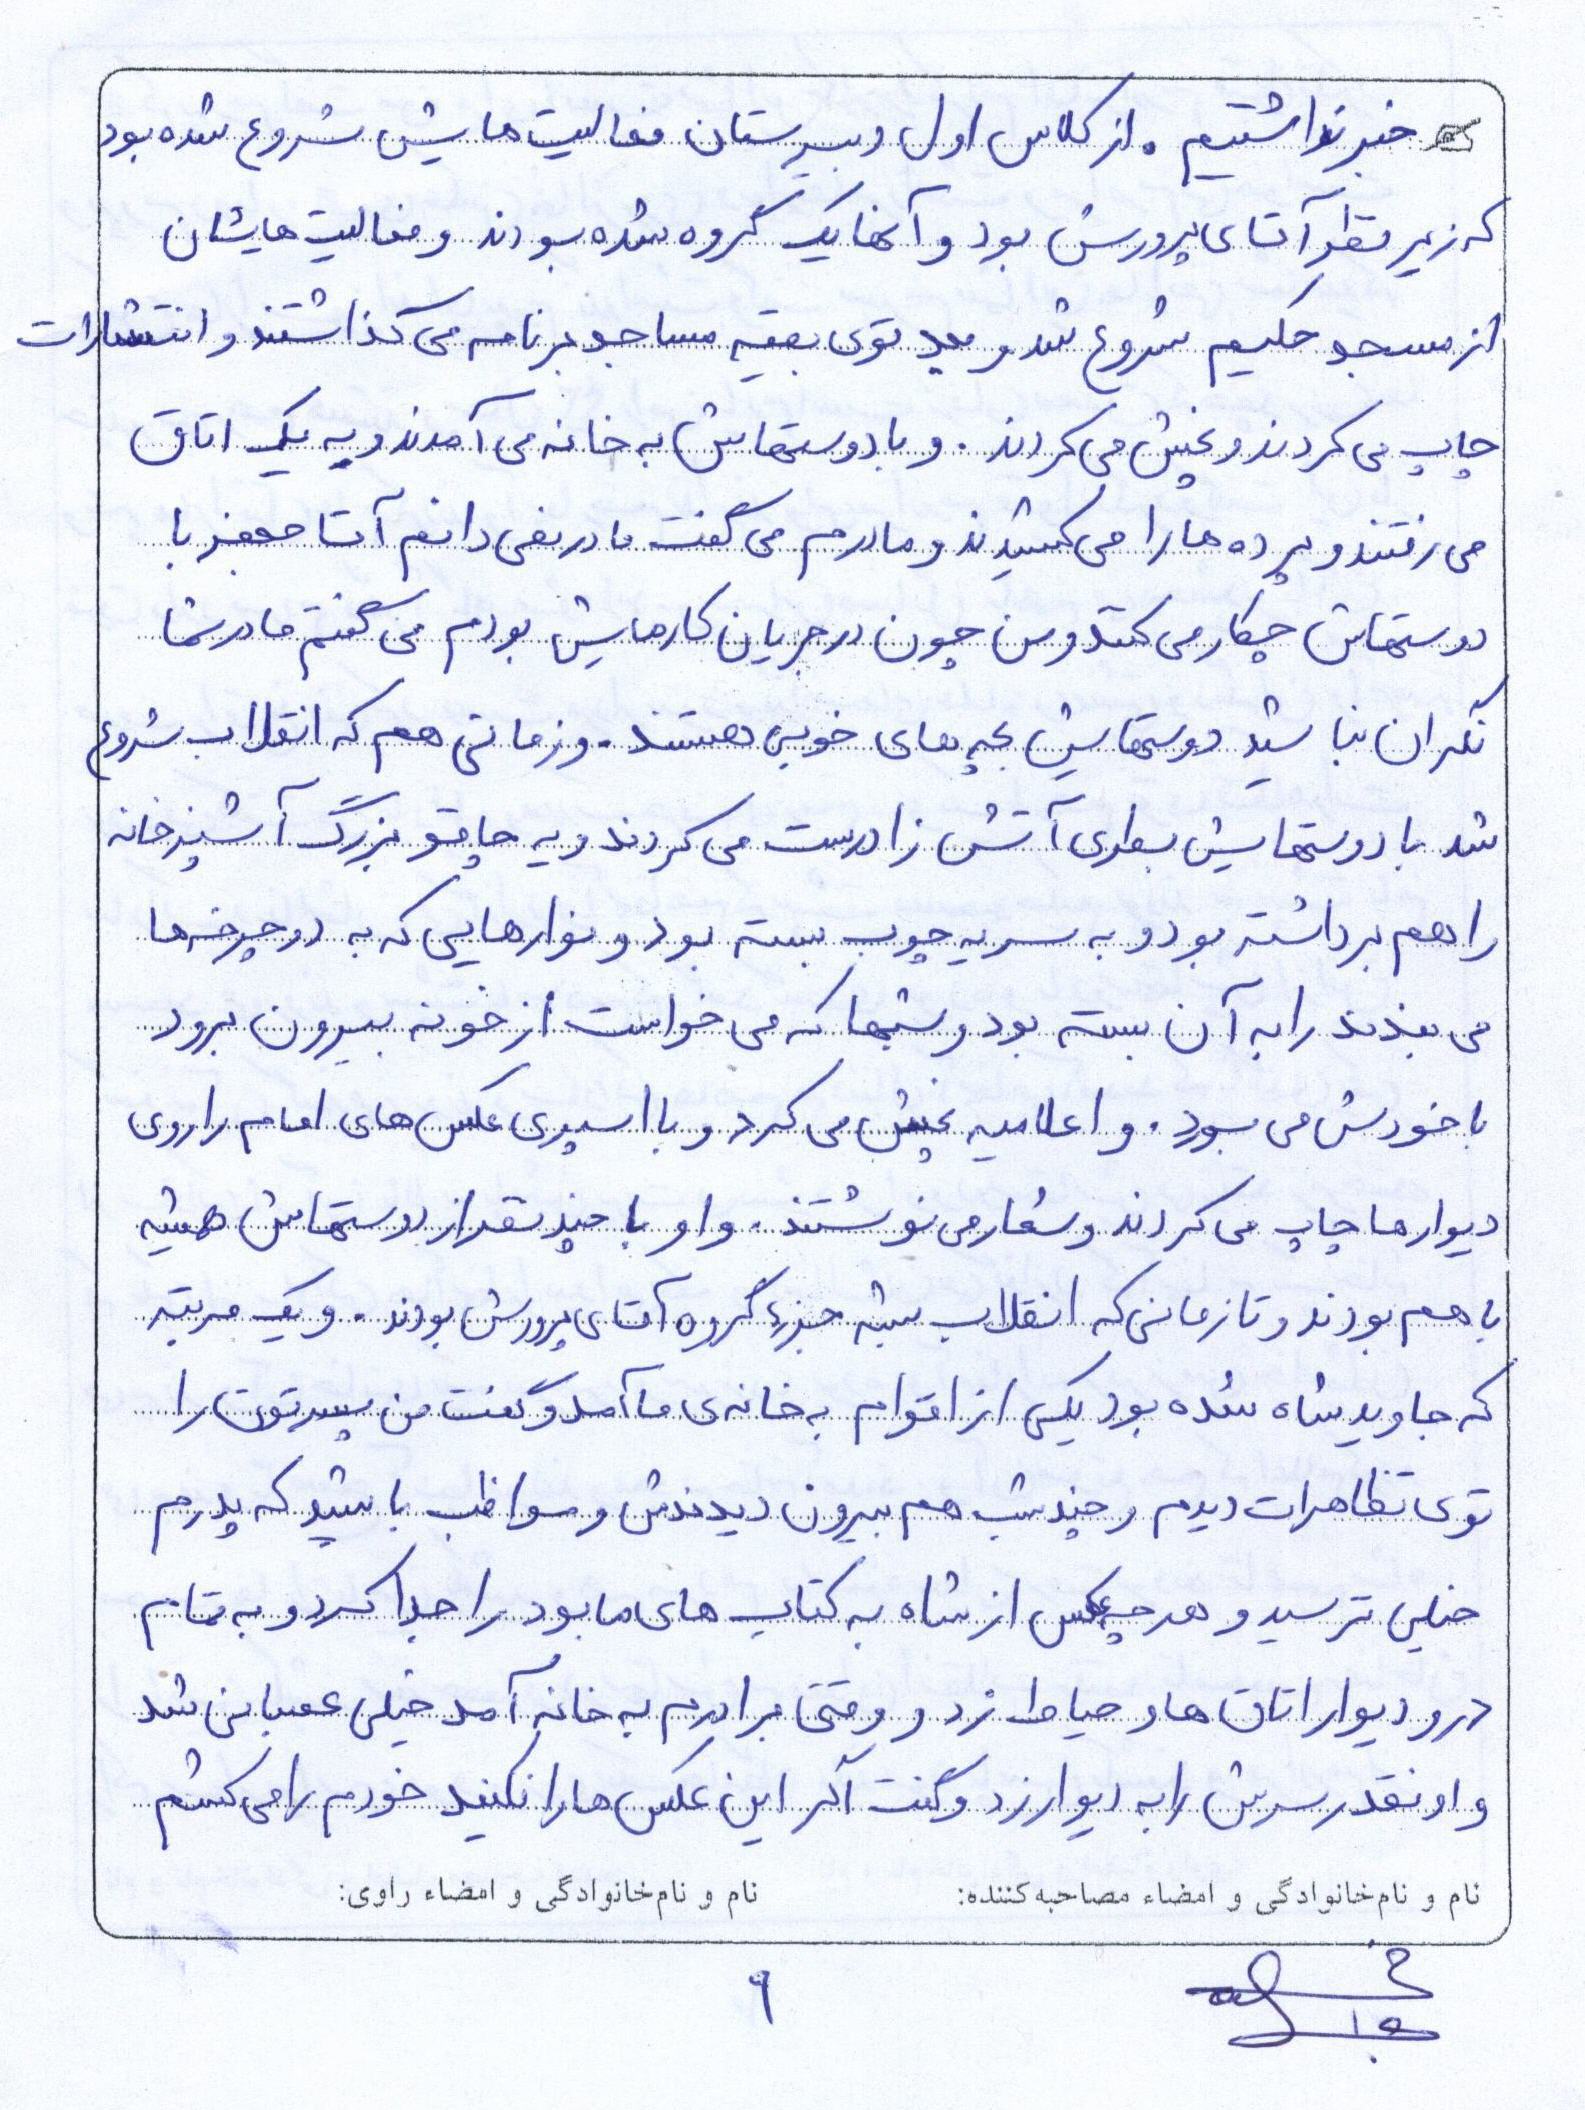 خبر نداشتیم . از کلاس اول دبیرستان فعالیت هایش شروع شده بود
که زیر نظر آقای پرورش بود و آنها یک گروه شده بودند و فعالیت هایشان
از مسجد حکیم شروع شد و بعد توی بقیه مساجد برنامه می گذاشتند و انتشارات
چاپ می کردند و پخش می کردند . و با دوستهاش به خانه می آمدند و یه یک اتاق
می رفتند و پرده ها را می کشیدند و مادرم می گفت مادر نمی دانم آقا جعفر با
دوستهاش چکار می کنند و من چون در جریان کارهایش بودم می گفتم مادر شما
نگران نباشید دوستهایش بچه های خوبی هستند . و زمانی هم که انقلاب شروع
شد با دوستهایش بطری آتش زا درست می کردند و یه چاقو بزرگ آشپزخانه
را هم برداشته بود و به سر یه چوب بسته بود و نوارهایی که به دوچرخه ها
می بندند را به آن بسته بود و شبها که می خواست از خونه بیرون برود
با خودش می بورد . و اعلامیه پخش می کرد و با اسپری عکس های امام را روی
دیوارها چاپ می کردند و شعار می نوشتند . و او با چند نفر از دوستهاش همیشه
با هم بودند و تا زمانی که انقلاب بشه جزء گروه آقای پرورش بودند . و یک مرتبه
که جاوید شاه شده بود یکی از اقوام به خانه ی ما آمد و گفت من پسرتون را
توی تظاهرات دیدم و چند شب هم بیرون دیدندش و مواظب باشید که پدرم
خیلی ترسید و هر چی عکس از شاه به کتاب های ما بود را جدا کرد و به تمام
در و دیوار اتاق ها و حیاط زد و وقتی برادرم به خانه آمد خیلی عصبانی شد
و اونقدر سرش را به دیوار زد و گفت اگر این عکس ها را نکنید خودم را می کشم
نام و نام خانوادگی و امضاء مصاحبه کننده: نام و نام خانوادگی و امضاء راوی:
۹